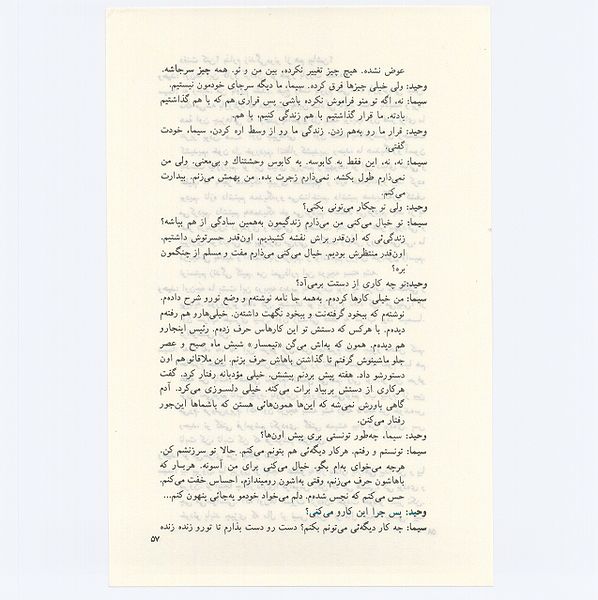 عوض نشده. هیچ چیز تغییر نکرده، بین من و تو. همه چیز سرجاشه.
وحید: ولی خیلی چیزها فرق کرده. سیما، ما دیگه سرجای خودمون نیستیم.
سیما: نه، اگه تو منو فراموش نکرده باشی. پس قراری هم که با هم گذاشتیم
یادته. ما قرار گذاشتیم با هم زندگی کنیم، با هم.
وحید: قرار ما رو بهم زدن. زندگی ما رو از وسط اره کردن. سیما، خودت
گفتی.
سیما: نه، نه، این فقط یه کابوسه. یه کابوس وحشتناك و بی‌معنی. ولی من
نمی‌ذارم طول بکشه. نمی‌ذارم زجرت بده. من بهمش می‌زنم. بیدارت
می‌کنم.
وحید: ولی تو چکار می‌تونی بکنی؟
سیما: تو خیال می‌کنی من می‌ذارم زندگیمون به‌همین سادگی از هم بپاشه؟
زندگی‌ئی که اون‌قدر براش نقشه کشیدیم، اون‌قدر حسرتوش داشتیم.
اون‌قدر منتظرش بودیم. خیال می‌کنی می‌ذارم مفت و مسلم از چنگمون
بره؟
وحید:تو چه کاری از دستت برمی‌آد؟
سیما: من خیلی کارها کرده‌م. به‌همه جا نامه نوشته‌م و وضع تورو شرح داده‌م.
نوشته‌م که بیخود گرفته‌نت و بیخود نگهت داشته‌ن. خیلی‌هارو هم رفته‌م
دیده‌م. با هرکس که دستش تو این کارهاس حرف زده‌م. رئیس اینجارو
هم دیده‌م. همون که به‌اش می‌گن «تیمسار» شیش ماه صبح و عصر
جلو ماشینوش گرفتم تا گذاشتن باهاش حرف بزنم. این ملاقاتو هم اون
دستورشو داد. هفته پیش بردنم پیشش. خیلی مؤدبانه رفتار کرد. گفت
هرکاری از دستش بربیاد برات می‌کنه. خیلی دلسوزی می‌کرد. آدم
گاهی باورش نمی‌شه که این‌ها همون‌هائی هستن که باشماها این‌جور
رفتار می‌کنن.
وحید: سیما، چه‌طور تونستی بری پیش اون‌ها؟
سیما: تونستم و رفتم. هرکار دیگه‌ئی هم بتونم می‌کنم. حالا تو سرزنشم کن.
هرچه می‌خوای به‌ام بگو. خیال می‌کنی برای من آسونه. هربار که
باهاشون حرف می‌زنم، وقتی به‌اشون رومیندازم، احساس خفت می‌کنم.
حس می‌کنم که نجس شده‌م. دلم می‌خواد خودمو به‌جائی پنهون کنم...
وحید: پس چرا این کارو می‌کنی؟
سیما: چه کار دیگه‌ئی می‌تونم بکنم؟ دست رو دست بذارم تا تورو زنده زنده
۵۷